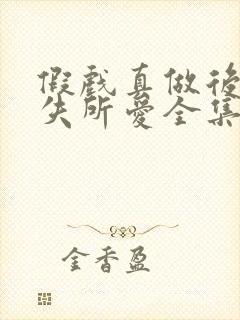 假戲真做後
失所愛全集
金香盈